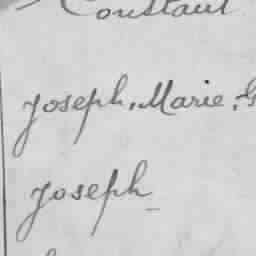 Constant
Joseph, Marie, G
Joseph